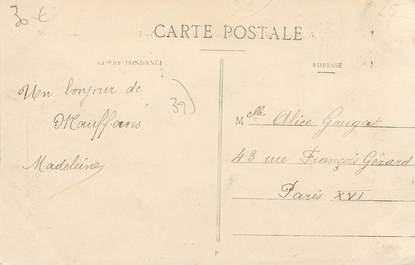 30 €
CARTE POSTALE
CORRESPONDANCE
ADRESSE
Un bonjour de
Mouffans
Madeleine
39)
Melle Alice Gouget
43 rue François Gérard
Paris XVI